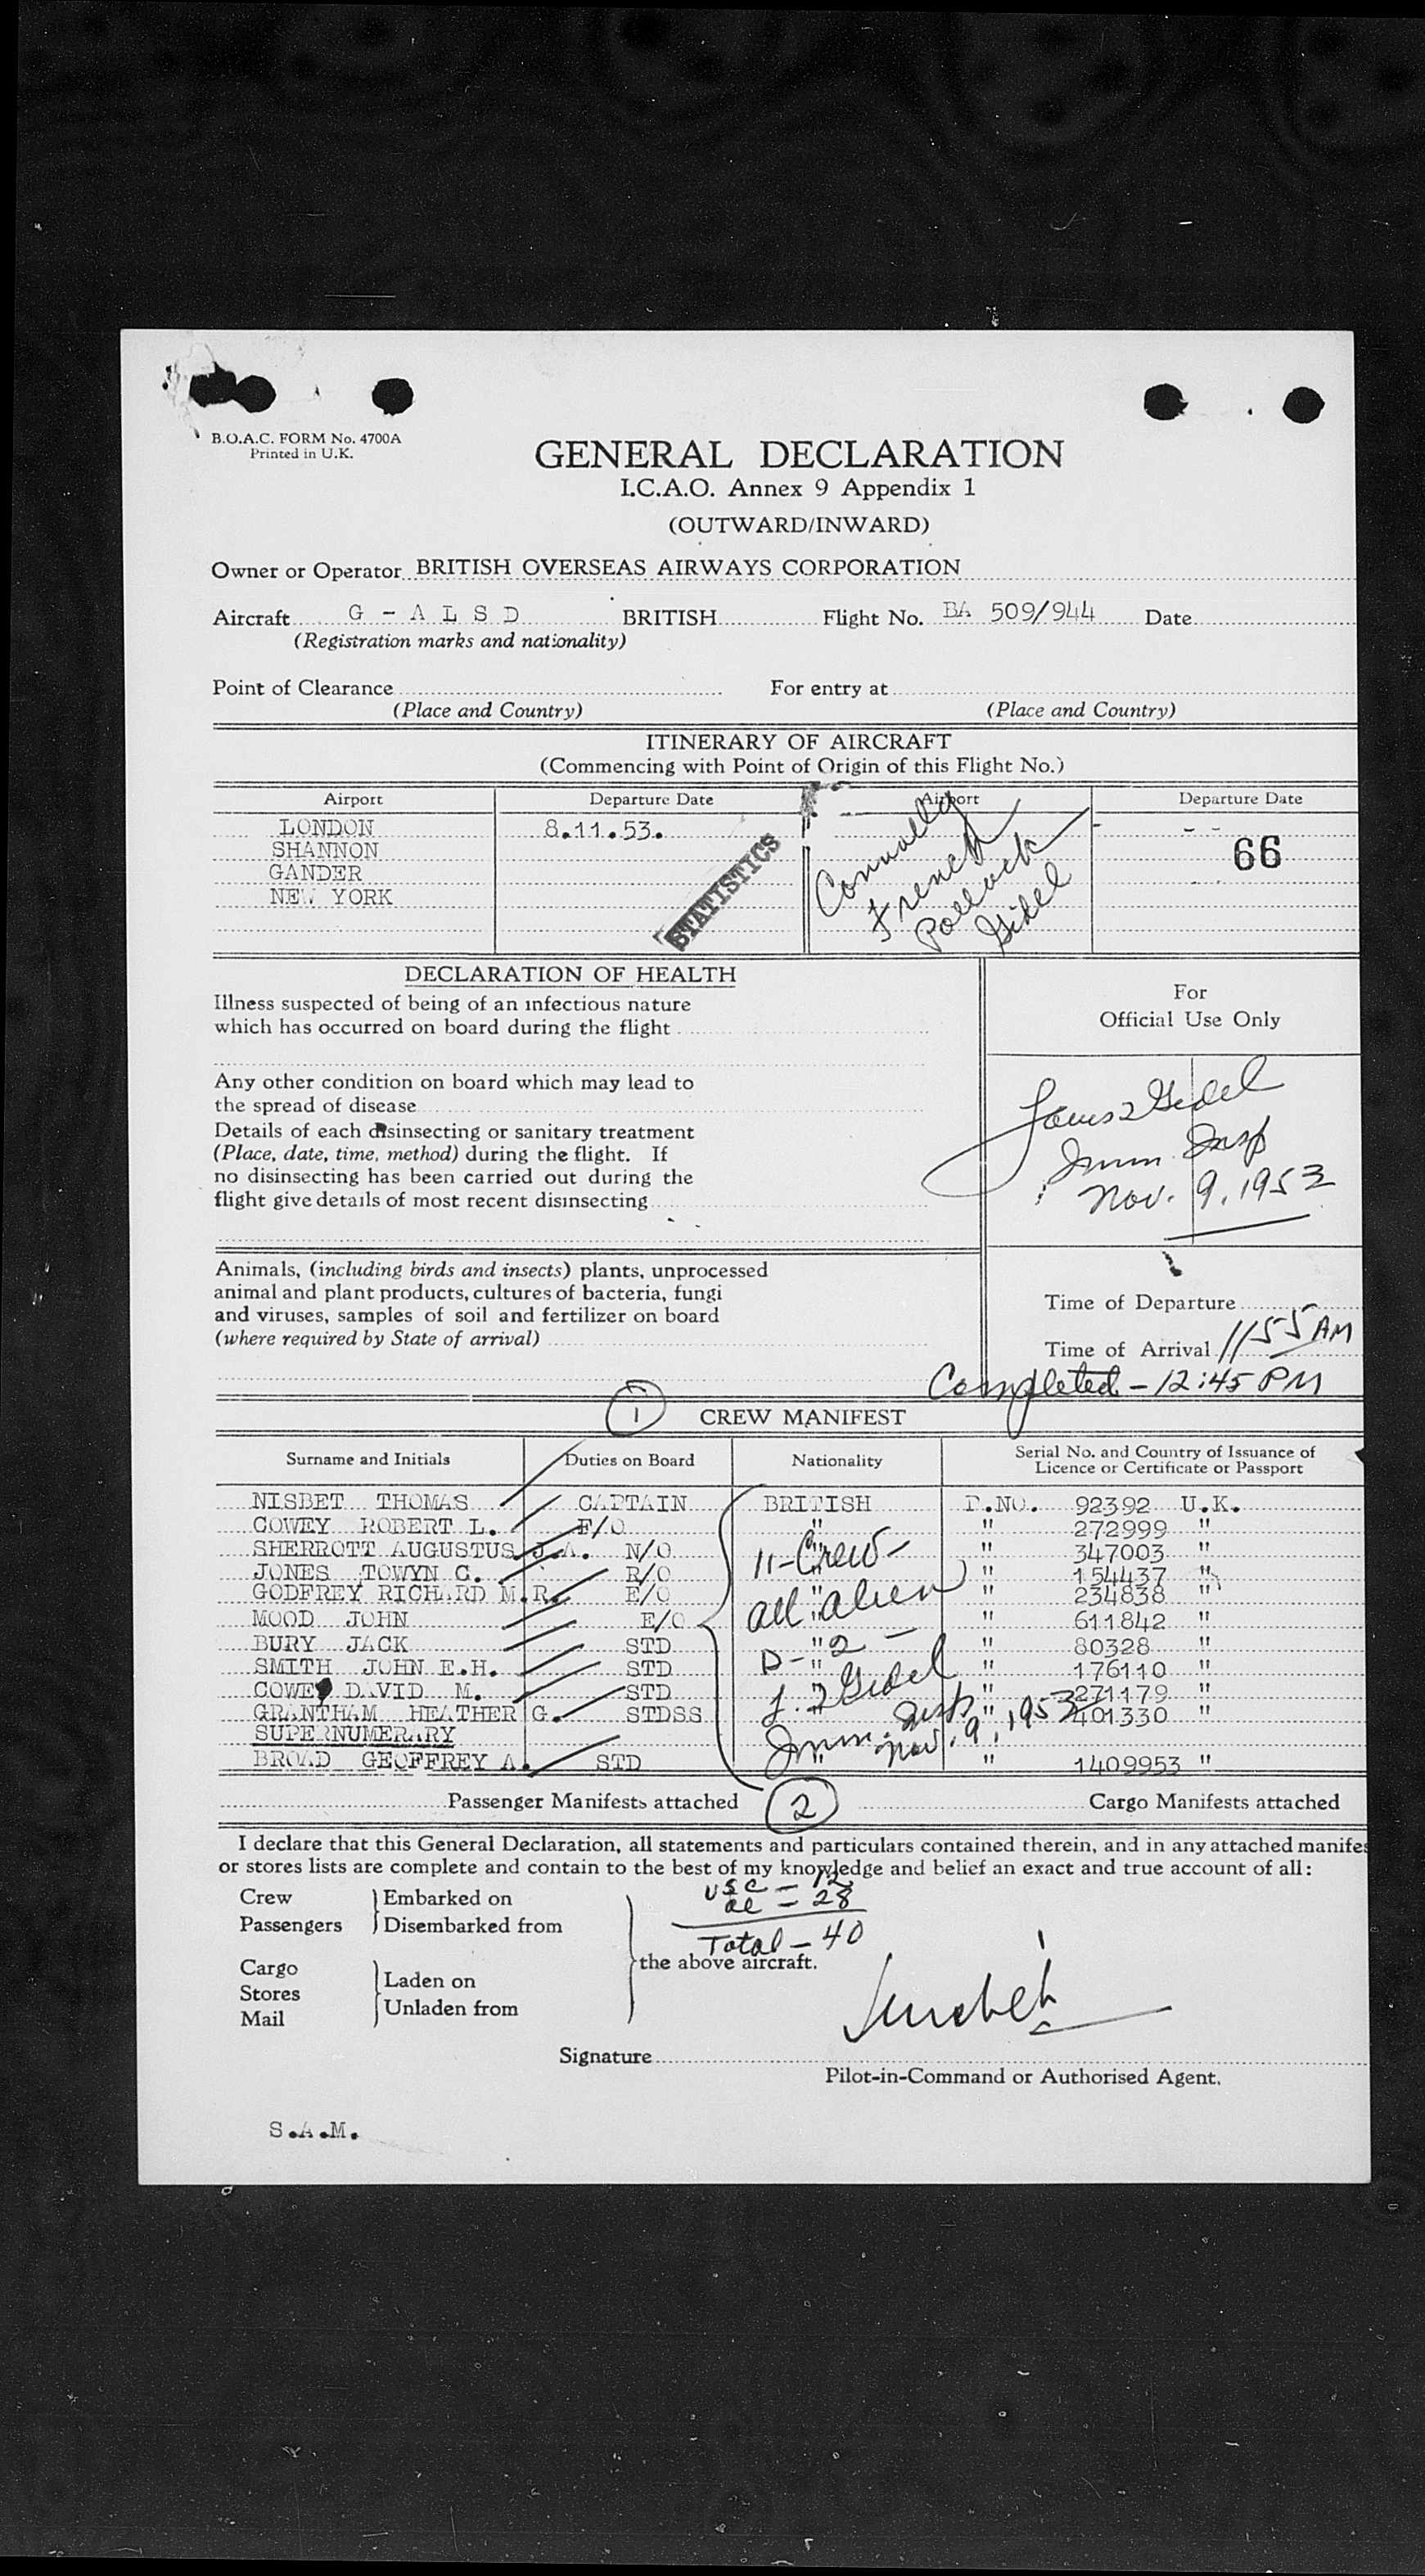 B.O.A.C. FORM No. 4700A
Printed in U.K.
GENERAL DECLARATION
I.C.A.O. Annex 9 Appendix 1
(OUTWARD/INWARD)
Owner or Operator BRITISH OVERSEAS AIRWAYS CORPORATION
Aircraft G - A L S D BRITISH Flight No. BA 509/944 Date
(Registration marks and nationality)
Point of Clearance For entry at
(Place and Country) (Place and Country)
ITINERARY OF AIRCRAFT
(Commencing with Point of Origin of this Flight No.)
Airport Departure Date Airport Departure Date
LONDON 8.11.53.
SHANNON
GANDER
NEW YORK
66
STATISTICS
Connally
French
Pollock
Gidel
DECLARATION OF HEALTH
Illness suspected of being of an infectious nature
which has occurred on board during the flight
Any other condition on board which may lead to
the spread of disease
Details of each disinsecting or sanitary treatment
(Place, date, time, method) during the flight. If
no disinsecting has been carried out during the
flight give details of most recent disinsecting
For
Official Use Only
Louis J Gidel
Imm. Insp
Nov. 9, 1953
Animals, (including birds and insects) plants, unprocessed
animal and plant products, cultures of bacteria, fungi
and viruses, samples of soil and fertilizer on board
(where required by State of arrival)
Time of Departure
Time of Arrival 1155 AM
Completed - 12:45 PM
1 CREW MANIFEST
Surname and Initials Duties on Board Nationality Serial No. and Country of Issuance of
Licence or Certificate or Passport
NISBET THOMAS CAPTAIN BRITISH P.NO. 92392 U.K.
COWEY ROBERT L. F/O " " 272999 "
SHERROTT AUGUSTUS J.A. N/O " " 347003 "
JONES TOWYN C. R/O " " 154437 "
GODFREY RICHARD M.R. E/O " " 234838 "
MOOD JOHN E/O " " 611842 "
BURY JACK STD " " 80328 "
SMITH JOHN E.H. STD " " 176110 "
COWE DAVID M. STD " " 271179 "
GRANTHAM HEATHER G. STDSS " " 401330 "
SUPERNUMERARY
BROAD GEOFFREY A. STD " " 1409953 "
11-Crew-
all alien
D-2-
L. J Gidel
Imm. Insp
Nov. 9, 1953
Passenger Manifests attached 2 Cargo Manifests attached
I declare that this General Declaration, all statements and particulars contained therein, and in any attached manifes
or stores lists are complete and contain to the best of my knowledge and belief an exact and true account of all:
USC - 12
al - 28
Total - 40
Crew Embarked on
Passengers Disembarked from
the above aircraft.
Cargo
Stores
Mail
Laden on
Unladen from
Signature
Pilot-in-Command or Authorised Agent.
S.A.M.